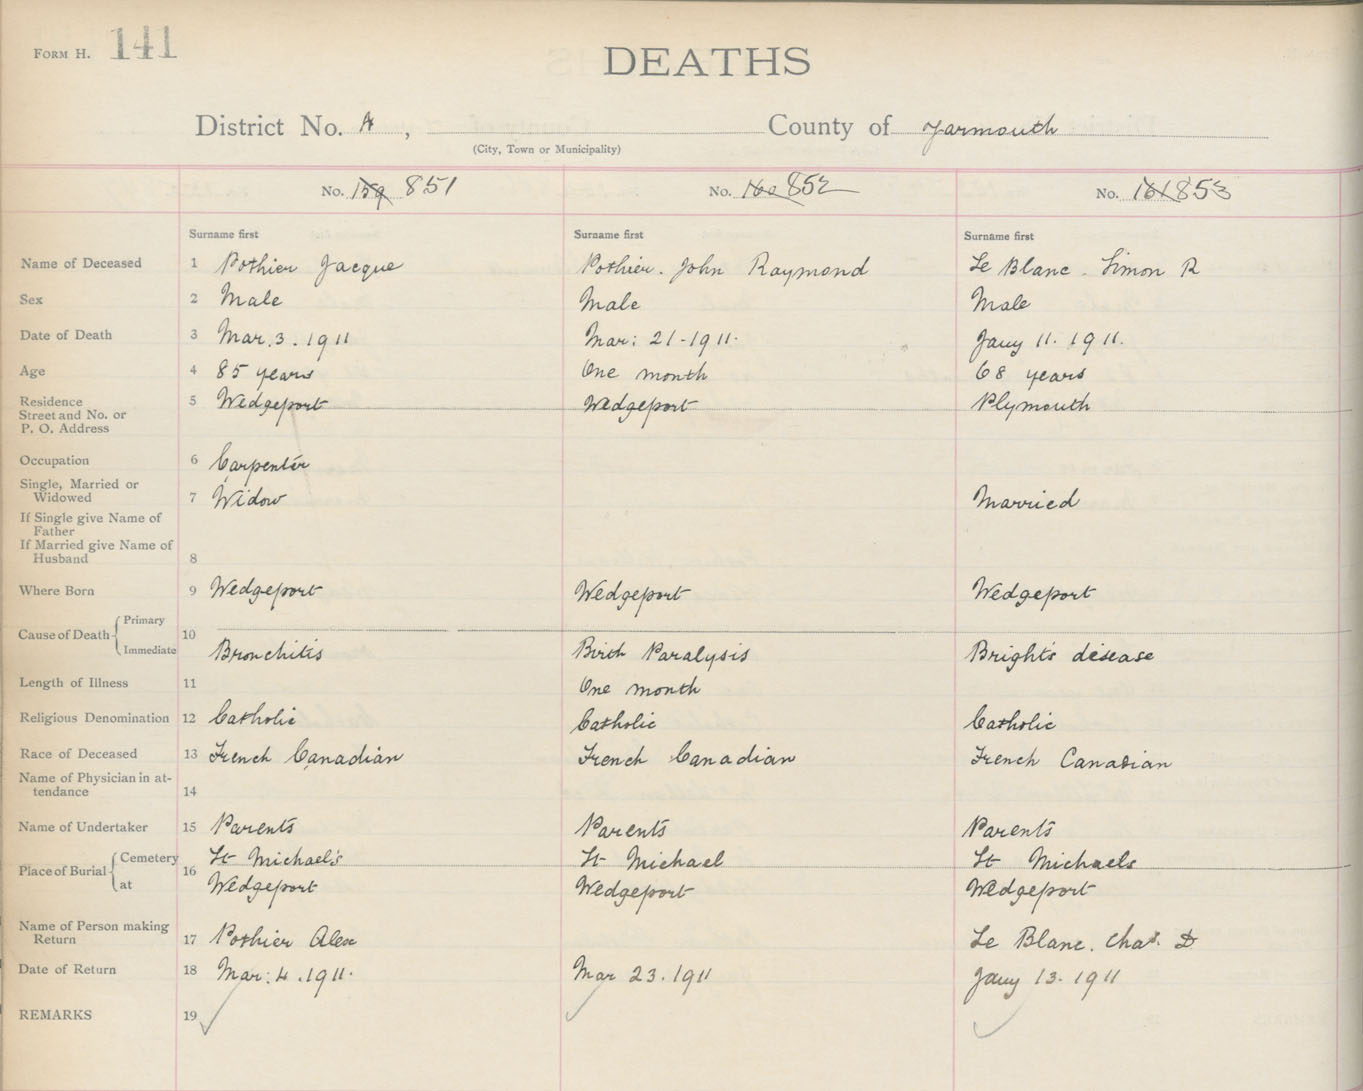 FORM H. 141
DEATHS
District No. A, County of Yarmouth
(City, Town or Municipality)
No. 159 851 No. 160 852 No. 161 853
Surname first Surname first Surname first
Name of Deceased 1 Pothier Jacque Pothier. John Raymond Le Blanc - Simon R
Sex 2 Male Male Male
Date of Death 3 Mar. 3. 1911 Mar: 21-1911. Jany 11. 1911.
Age 4 85 years One month 68 years
Residence
Street and No. or
P. O. Address 5 Wedgeport Wedgeport Plymouth
Occupation 6 Carpenter
Single, Married or
Widowed 7 Widow Married
If Single give Name of
Father
If Married give Name of
Husband 8
Where Born 9 Wedgeport Wedgeport Wedgeport
Primary
Cause of Death 10
Immediate Bronchitis Birth Paralysis Bright's disease
Length of Illness 11 One month
Religious Denomination 12 Catholic Catholic Catholic
Race of Deceased 13 French Canadian French Canadian French Canadian
Name of Physician in at-
tendance 14
Name of Undertaker 15 Parents Parents Parents
Cemetery St Michael's St Michael St Michaels
Place of Burial 16
at Wedgeport Wedgeport Wedgeport
Name of Person making
Return 17 Pothier Alex Le Blanc. Chas. D
Date of Return 18 Mar: 4. 1911. Mar 23. 1911 Jany 13. 1911
REMARKS 19